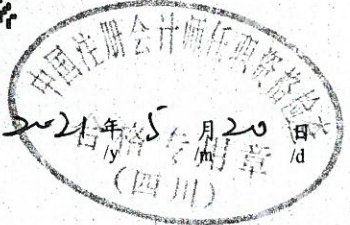 中国注册会计师任职资格检查
2021年5月20日
/y /m /d
合格专用章
(四川)